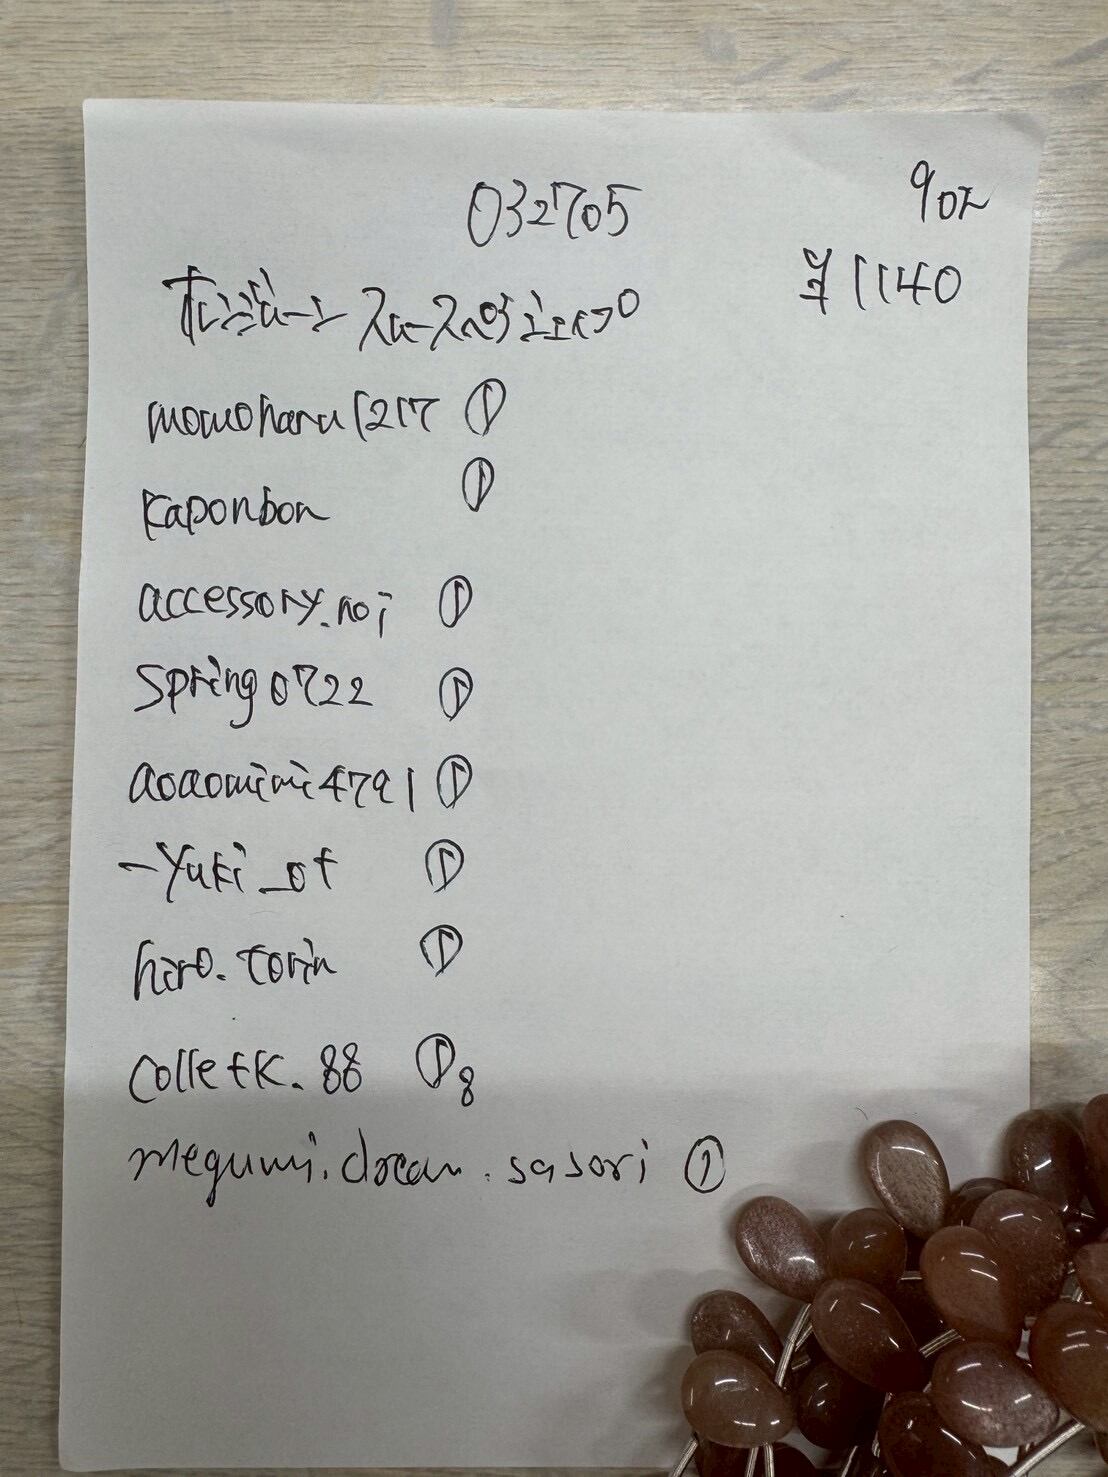 032705
9oz
¥1140
momoharu1217 ①
kaponbon ①
accessory.noi ①
spring0722 ①
aoaomimi4791 ①
-yuki_ot ①
hiro.torin ①
colletk.88 ① 8
megumi.dream.sasori ①